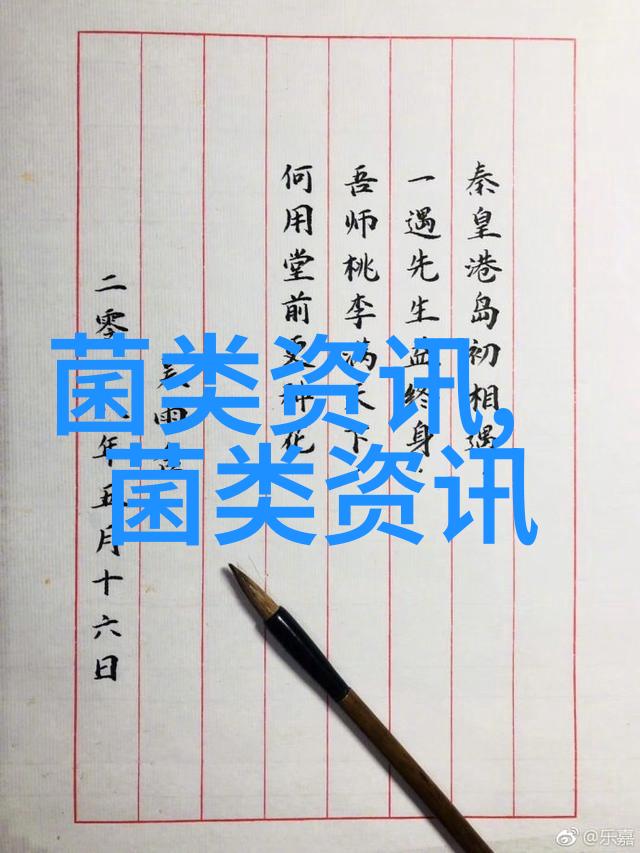 秦皇港岛初相遇
一遇先生益终身
吾师桃李满天下
何用堂前更种花
吴雨
二零 年五月十六日
菌类资讯,
菌类资讯
@乐嘉